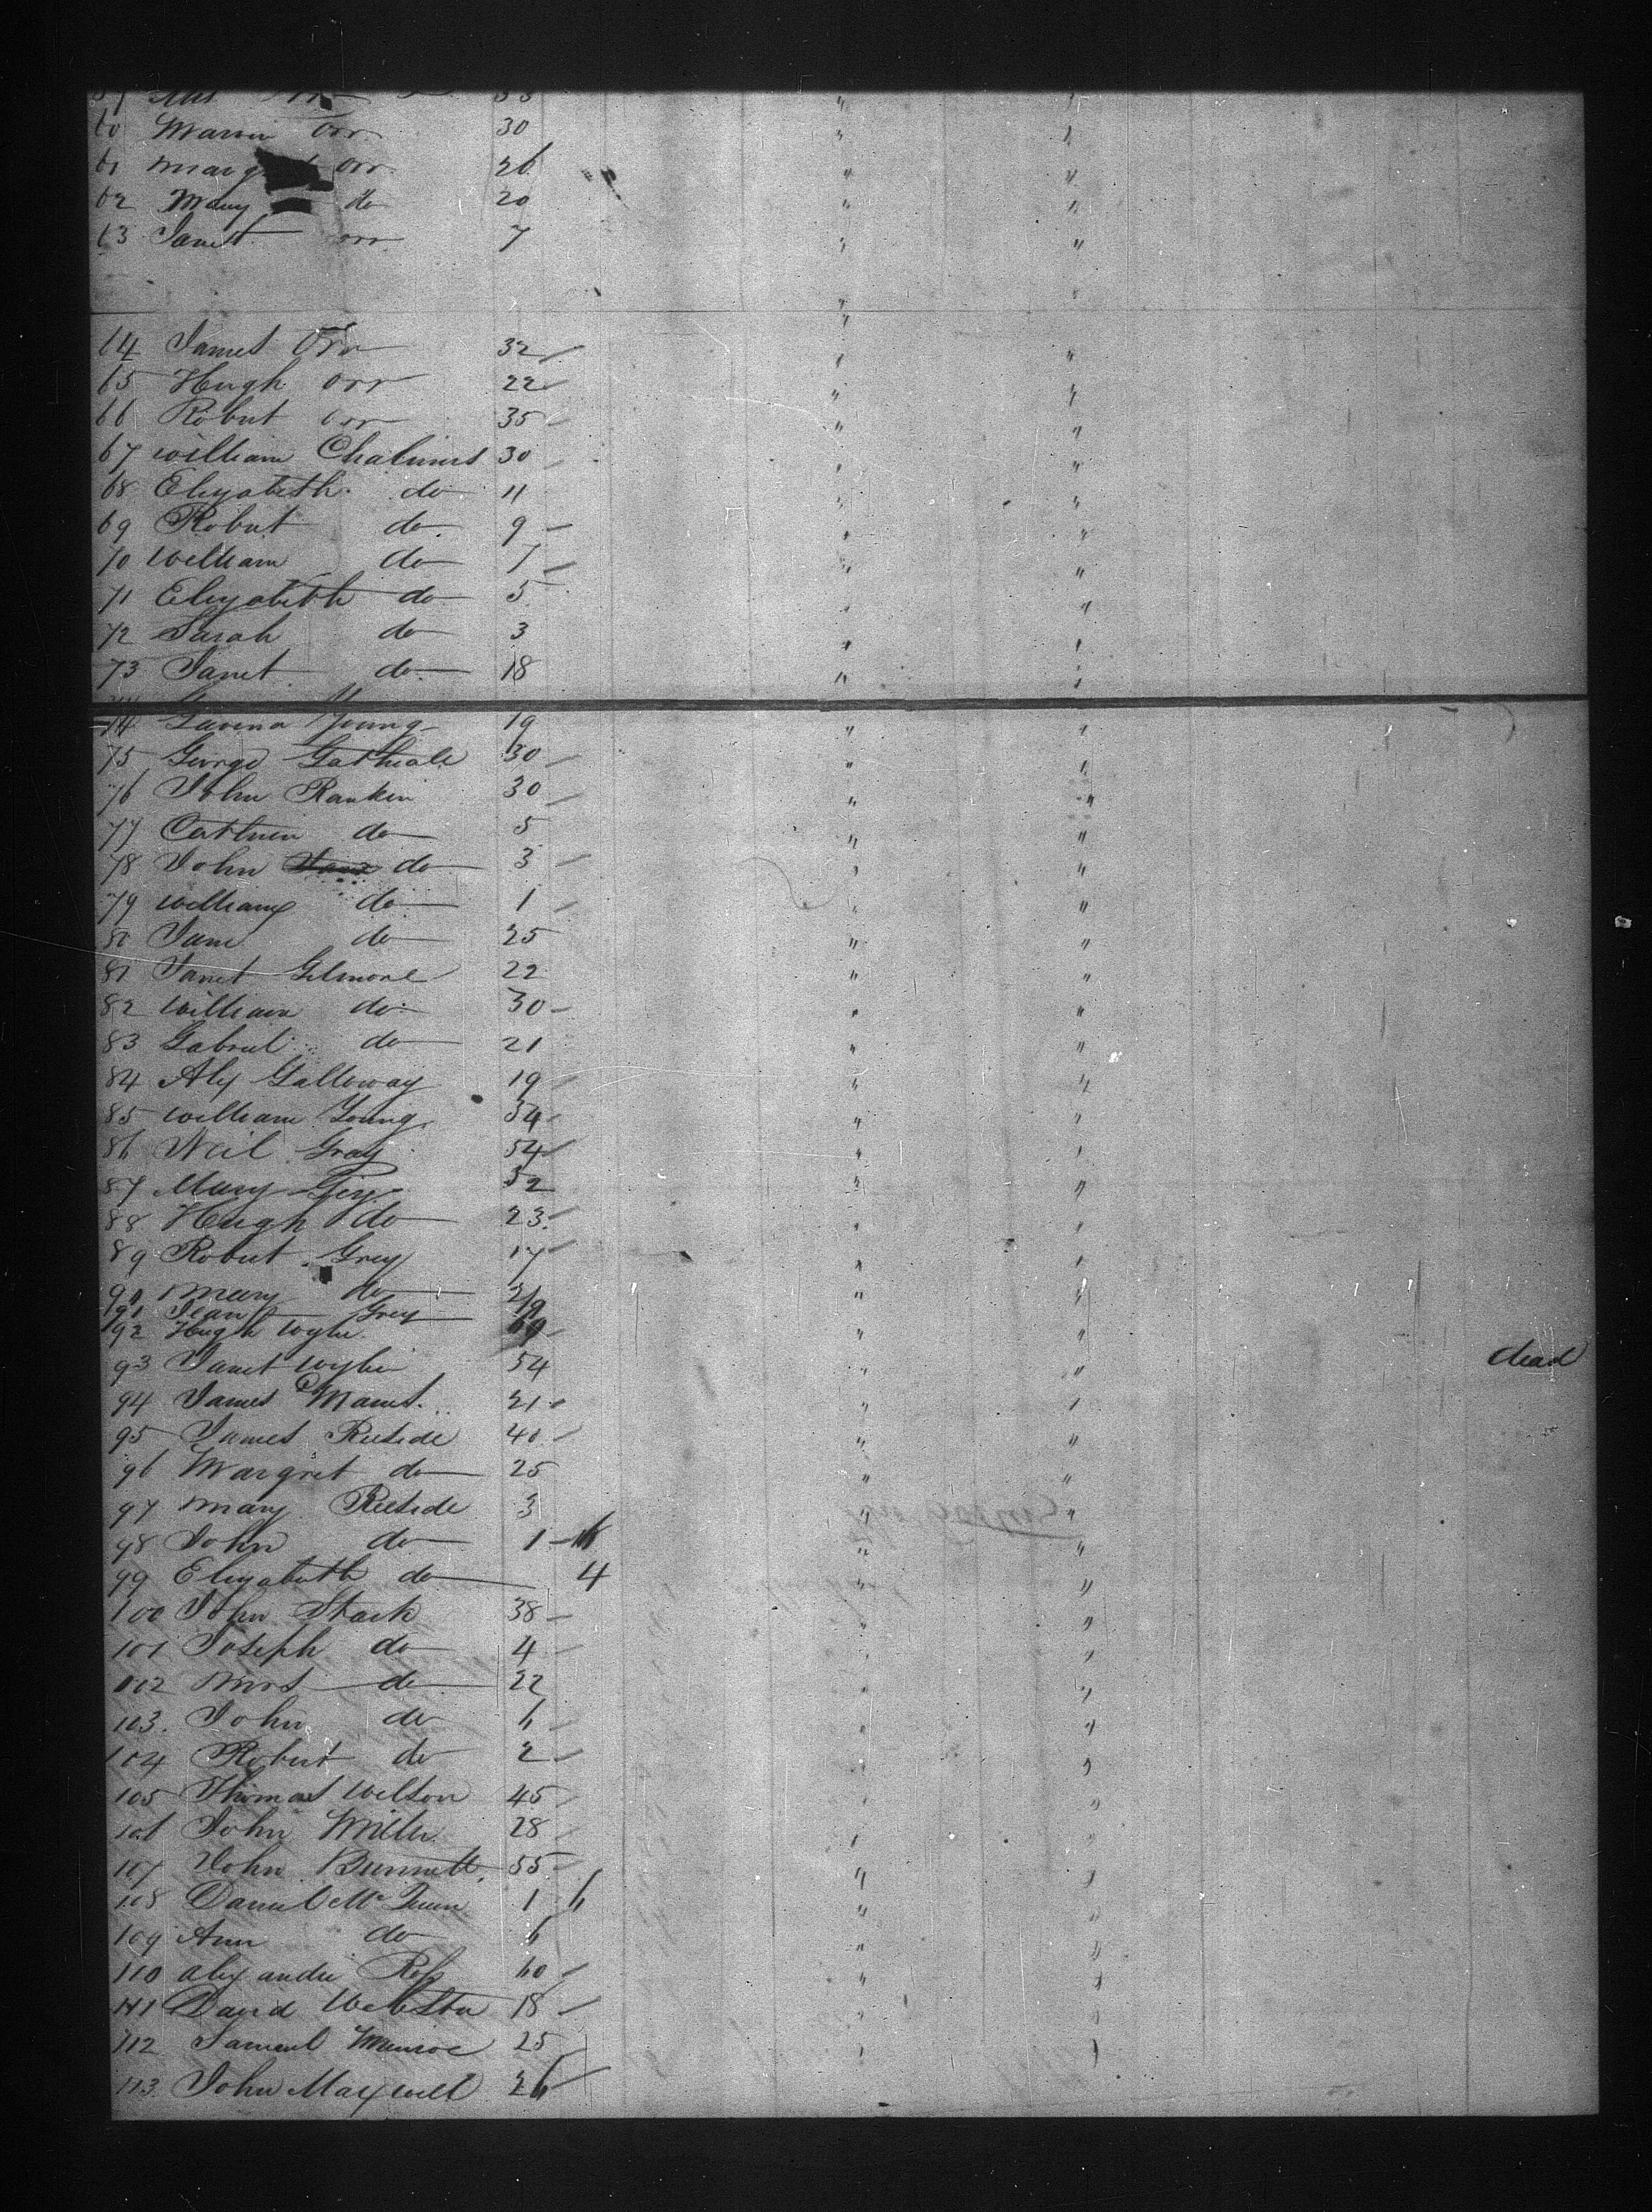 60 Marrin Orr 30 " "
61 Marg Orr 26 " "
62 Mary do 20 " "
63 Janet Orr 7 " "
64 James Orr 32 " "
65 Hugh Orr 22 " "
66 Robert Orr 35 " "
67 William Chalmers 30 " "
68 Elizabeth do 11 " "
69 Robert do 9 " "
70 William do 7 " "
71 Elizabeth do 5 " "
72 Sarah do 3 " "
73 Janet do 18 " "
74 Young 19 " "
75 George 30 " "
76 John Rankin 30 " "
77 do 5 " "
78 John do 3 " "
79 William do 1 " "
80 Jane do 25 " "
81 Janet Gilmore 22 " "
82 William do 30 " "
83 Gabriel do 21 " "
84 Alex Galloway 19 " "
85 William Young 34 " "
86 Neil Gray 54 " "
87 Mary 52 " "
88 Hugh do 23 " "
89 Robert Grey 17 " "
90 Mary do " "
91 Jean Grey
92 Hugh Wylie " "
93 Janet Wylie 54 " " dead
94 James 21 " "
95 James Rietside 40 " "
96 Margret do 25 " "
97 Mary Rietside 3 " "
98 John do 1 " "
99 Elizabeth do 4 " "
100 John Stark 38 " "
101 Joseph do 4 " "
102 Mrs do 22 " "
103. John do 6 " "
104 Robert do 2 " "
105 Thomas Wilson 45 " "
106 John Miller 28 " "
107 John Bunnett 55 " "
108 Daniel Mc 1 6 " "
109 Ann do 6 " "
110 Alexander Ross 60 " "
111 David Webster 18 " "
112 Samuel Munroe 25 " "
113. John Maxwell 26